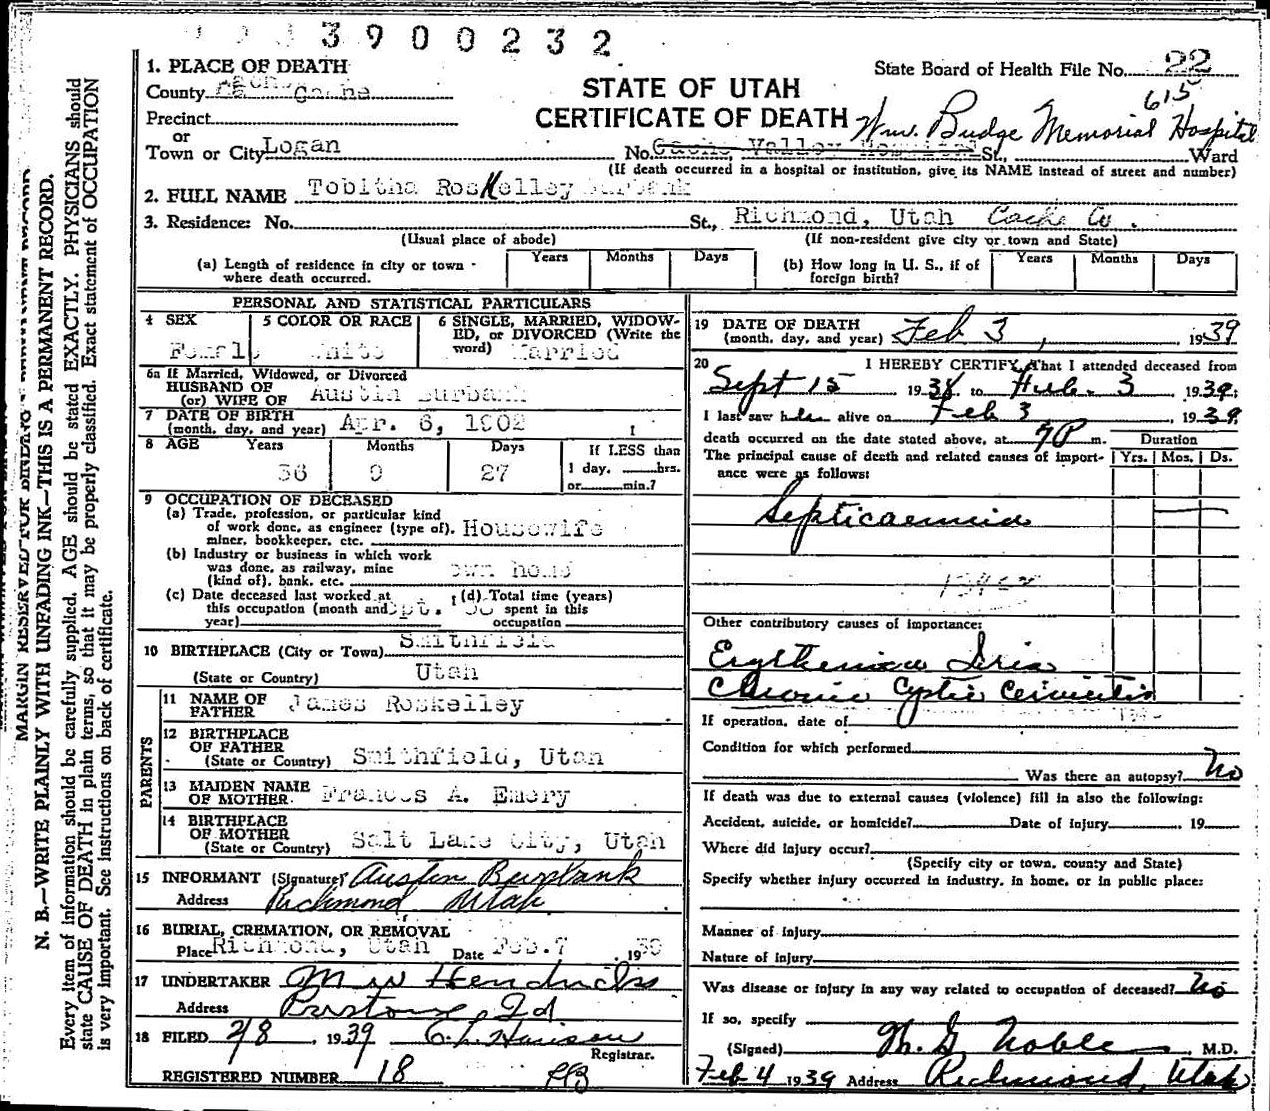 3900232
1. PLACE OF DEATH
State Board of Health File No. 22
County Cache
STATE OF UTAH
615
Precinct
CERTIFICATE OF DEATH
Wm. Budge Memorial Hospital
or
Town or City Logan
No. Cache Valley Hospital St., Ward
(If death occurred in a hospital or institution, give its NAME instead of street and number)
2. FULL NAME Tobitha Roskelley Burbank
3. Residence: No. St., Richmond, Utah Cache Co.
(Usual place of abode) (If non-resident give city or town and State)
(a) Length of residence in city or town where death occurred. Years Months Days
(b) How long in U. S., if of foreign birth? Years Months Days
PERSONAL AND STATISTICAL PARTICULARS
4 SEX 5 COLOR OR RACE 6 SINGLE, MARRIED, WIDOW-
ED, or DIVORCED (Write the
word) Married
Female White
6a If Married, Widowed, or Divorced
HUSBAND OF
(or) WIFE OF Austin Burbank
7 DATE OF BIRTH
(month, day, and year) Apr. 6, 1902
8 AGE Years Months Days If LESS than
36 9 27 1 day, hrs.
or min.?
9 OCCUPATION OF DECEASED
(a) Trade, profession, or particular kind
of work done, as engineer (type of), Housewife
miner, bookkeeper, etc.
(b) Industry or business in which work
was done, as railway, mine own home
(kind of), bank, etc.
(c) Date deceased last worked at (d) Total time (years)
this occupation (month and Sept. 38 spent in this
year) occupation
10 BIRTHPLACE (City or Town) Smithfield
(State or Country) Utah
PARENTS
11 NAME OF
FATHER James Roskelley
12 BIRTHPLACE
OF FATHER
(State or Country) Smithfield, Utah
13 MAIDEN NAME
OF MOTHER Frances A. Emery
14 BIRTHPLACE
OF MOTHER
(State or Country) Salt Lake City, Utah
15 INFORMANT (Signature) Austin Burbank
Address Richmond, Utah
16 BURIAL, CREMATION, OR REMOVAL
Place Richmond, Utah Date Feb. 7, 1939
17 UNDERTAKER M W Hendricks
Address Preston, Id
18 FILED 2/8, 1939 C. L. Hansen
Registrar.
REGISTERED NUMBER 18
19 DATE OF DEATH
(month, day, and year) Feb 3, 1939
20 I HEREBY CERTIFY, That I attended deceased from
Sept 15 1938 to Feb. 3 1939;
I last saw her alive on Feb 3, 1939,
death occurred on the date stated above, at 7P m.
Duration
The principal cause of death and related causes of import-
ance were as follows:
Yrs. Mos. Ds.
Septicaemia
Other contributory causes of importance:
Chronic Cystic Cervicitis
If operation, date of
Condition for which performed
Was there an autopsy? No
If death was due to external causes (violence) fill in also the following:
Accident, suicide, or homicide? Date of injury 19
Where did injury occur?
(Specify city or town, county and State)
Specify whether injury occurred in industry, in home, or in public place:
Manner of injury
Nature of injury
Was disease or injury in any way related to occupation of deceased? No
If so, specify
(Signed) M. G. Noble M.D.
Feb 4 1939 Address Richmond, Utah
MARGIN RESERVED FOR BINDING
N. B.—WRITE PLAINLY WITH UNFADING INK—THIS IS A PERMANENT RECORD.
Every item of information should be carefully supplied. AGE should be stated EXACTLY. PHYSICIANS should
state CAUSE OF DEATH in plain terms, so that it may be properly classified. Exact statement of OCCUPATION
is very important. See instructions on back of certificate.